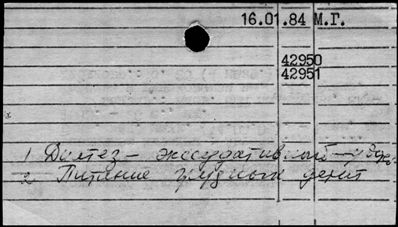 16.01.84 М.Г.
42950
42951
1 Диатез - экссудативный -
2 Питание грудных детей